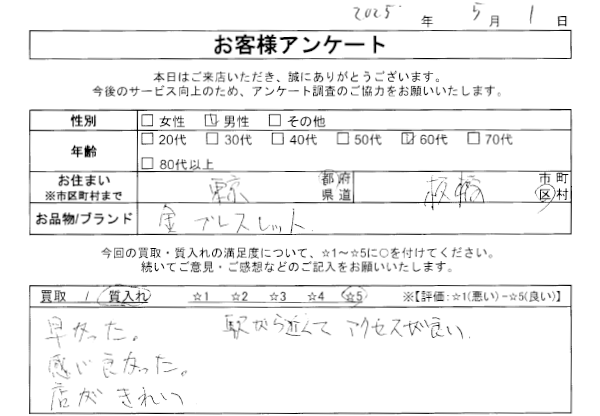 2025年 5月 1日
お客様アンケート
本日はご来店いただき、誠にありがとうございます。
今後のサービス向上のため、アンケート調査のご協力をお願いいたします。
性別 □女性 ☑男性 □その他
年齢 □20代 □30代 □40代 □50代 ☑60代 □70代
□80代以上
お住まい ※市区町村まで 東京 都府県道 板橋 市町区村
お品物/ブランド 金 ブレスレット
今回の買取・質入れの満足度について、☆1～☆5に○を付けてください。
続いてご意見・ご感想などのご記入をお願いいたします。
買取 / 質入れ ☆1 ☆2 ☆3 ☆4 ☆5 ※【評価:☆1(悪い)−☆5(良い)】
早かった。 駅から近くて アクセスが良い
感じ良かった。
店がきれい